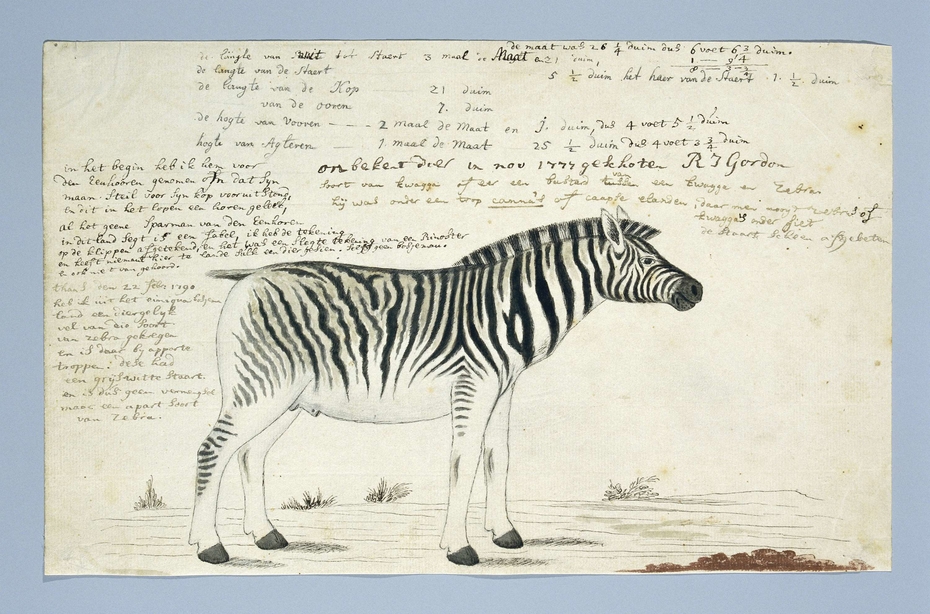 de maat was 26 1/4 duim dus 6 voet 6 3/4 duim.
de langte van snuit tot Staert 3 maal de Maat en 21 duim,
de langte van de Staert 5 1/2 duim het haer van de Staert 7. 1/2 duim
de langte van de Kop 21 duim
van de ooren 7. duim
de hogte van Vooren 2 maal de Maat en J. duim, dus 4 voet 5 1/2 duim
hogte van Agteren 1 maal de Maat 25 1/2 duim dus 4 voet 3 3/4 duim
onbekent dier in nov 1777 geschoten R J Gordon
soort van kwagga of eer een bastard tussen een kwagga en Zebra
hij was onder een trop canna's of caapse elanden
kwagga's onder siet
de staart scheen afgebeten
in het begin heb ik hem voor
den Eenhooren genomen om dat syn
maan Steil voor syn kop vooruit stond,
en dit in het lopen een horen geleek,
al het geene Sparman van den Eenhoren
in dit land segt is een fabel, ik heb de tekening
op de klippen afgetekend, en het was een slegte tekening van een Rinoster
en heeft niemant hier te lande sulk een dier gesien.
en ook niet van gehoord.
thans den 22 febr: 1790
heb ik uit het einiqua
land een diergelyk
vel van die soort
van zebra gekregen
en is daar by apparte
troppen. dese had
een grijswitte staart
en is dus geen
maar een apart soort
van Zebra.